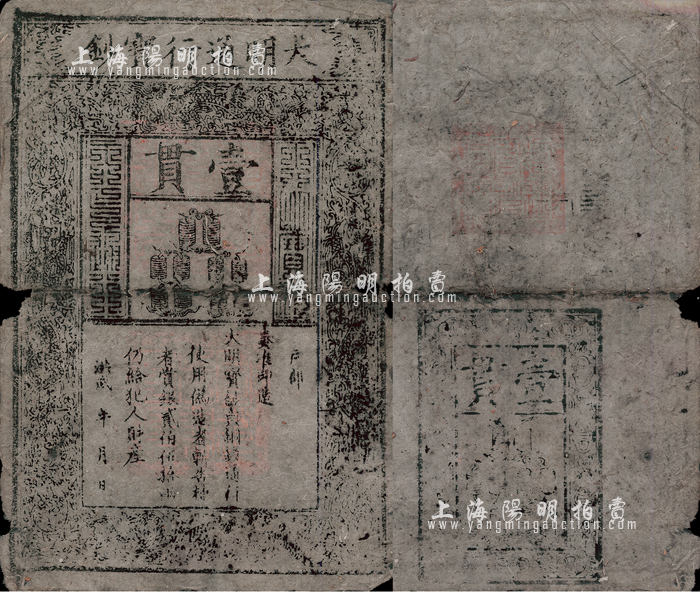 大明通行寶鈔
壹貫
戶部
奏准印造
大明寶鈔與銅錢通行
使用偽造者斬告捕
者賞銀貳伯伍拾兩
仍給犯人財產
洪武 年 月 日
壹貫
上海陽明拍賣
www.yangmingauction.com
上海陽明拍賣
www.yangmingauction.com
上海陽明拍賣
www.yangmingauction.com
上海陽明拍賣
www.yangmingauction.com